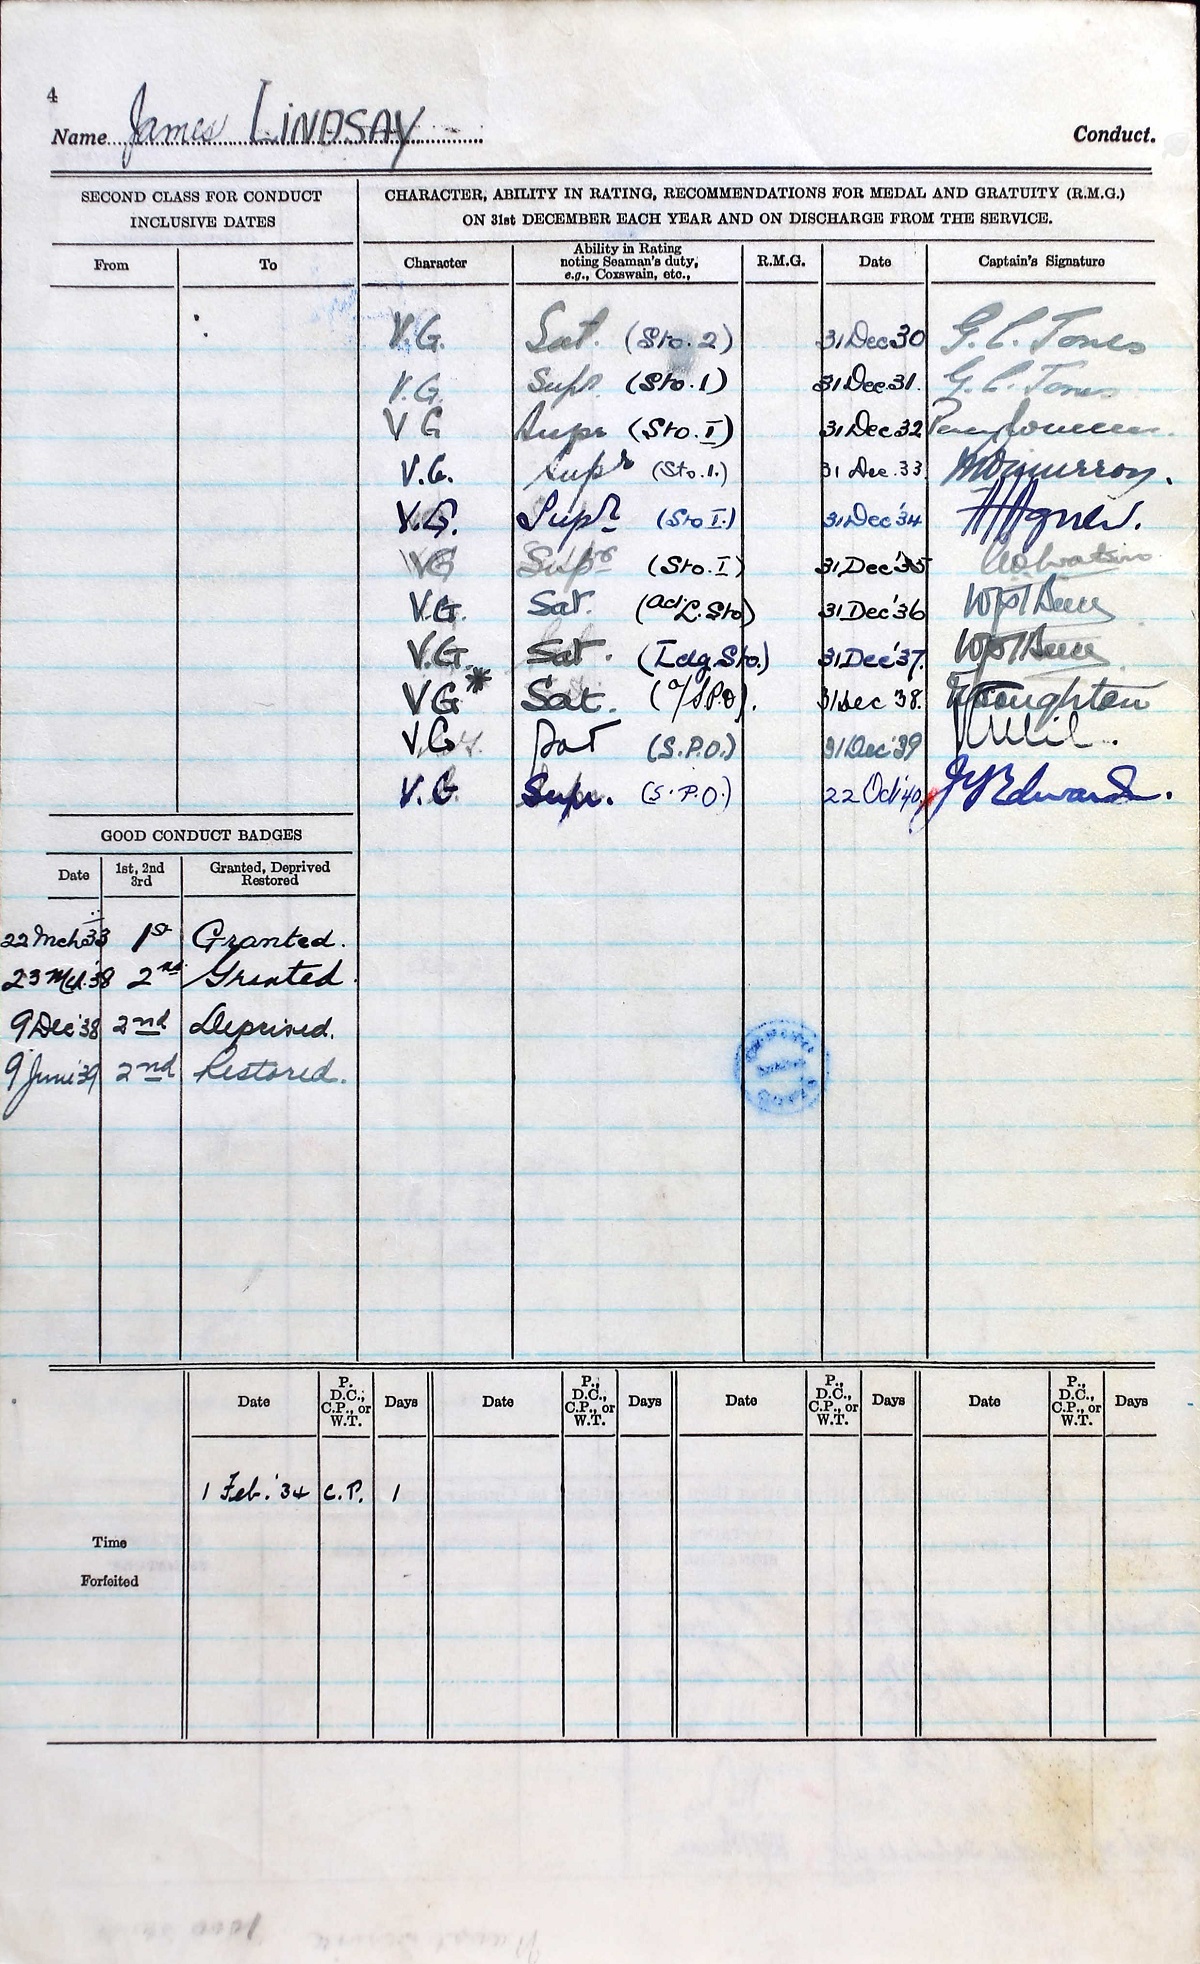 4
Name James LINDSAY
Conduct.
SECOND CLASS FOR CONDUCT
INCLUSIVE DATES
From To
CHARACTER, ABILITY IN RATING, RECOMMENDATIONS FOR MEDAL AND GRATUITY (R.M.G.)
ON 31st DECEMBER EACH YEAR AND ON DISCHARGE FROM THE SERVICE.
Character
Ability in Rating
noting Seaman's duty,
e.g., Coxswain, etc.,
R.M.G. Date Captain's Signature
V.G. Sat. (Sto. 2) 31 Dec 30 G. C. Jones
V.G. Supr. (Sto. 1) 31 Dec 31. G. C. Jones
V G Supr (Sto. I) 31 Dec 32
V.G. Supr (Sto. 1.) 31 Dec. 33
V.G. Supr (Sto I.) 31 Dec '34 Agnew.
VG Supr (Sto. I) 31 Dec '35
V.G. Sat. (Act L. Sto) 31 Dec '36
V.G. Sat. (Ldg. Sto.) 31 Dec '37.
VG* Sat. (A/S.P.O). 31 Dec 38. Houghton
V.G Sat (S.P.O.) 31 Dec '39
V.G Supr. (S.P.O.) 22 Oct '40. Edwards.
GOOD CONDUCT BADGES
Date
1st, 2nd
3rd
Granted, Deprived
Restored
22 Mch 33 1st Granted.
23 Mch. '38 2nd Granted.
9 Dec '38 2nd Deprived.
9 June '39 2nd Restored.
Date P. D.C.; C.P., or W.T. Days Date P., D.C., C.P., or W.T. Days Date P., D.C., C.P., or W.T. Days Date P., D.C., C.P., or W.T. Days
1 Feb. '34 C.P. 1
Time
Forfeited